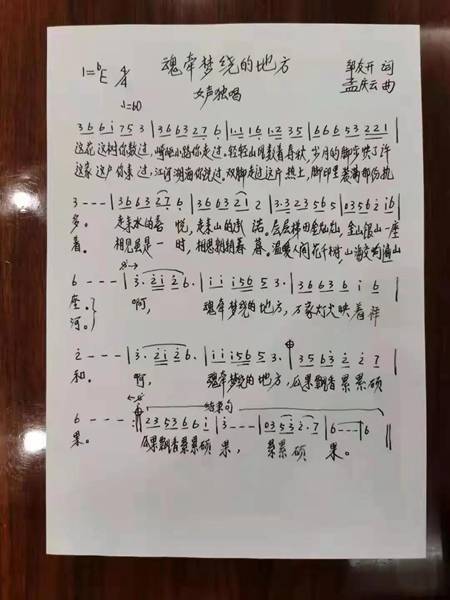 魂牵梦绕的地方
1=♭E 4/4
女声独唱
邹友开 词
孟庆云 曲
♩=60
3 6 6 i 7 5 3 | 3 6 6 3 2 7 6 | 1·1 1 6 1·2 3 5 | 6 6 6 5 3 2 2 1
这花这树你数过,崎岖小路你走过。轻轻山风数着春秋,岁月的脚步映了许
这家这户你来过,江河湖海你说过,双脚走过这片热土,脚印里装满
3 - - - | 3 6 6 3 2 7 6 | 3 6 6 3 2 1 2 | 3·3 2 3 5 6 5 | 0 3 5 6 2 i 6
多。 走来水的喜悦,走来山的承诺。层层梯田金灿灿,金山银山一座
着。 相见是一时,相思朝朝暮暮。温暖人间花千树,山海交响满山
6 - - - | 3· 2 i 2 6· | i i i 5 6 5 3· | 3 6 6 3 6 i 6
座。 啊, 魂牵梦绕的地方,万家灯火映着祥
河。
2 - - - | 3· 2 i 2 6· | i i i 5 6 5 3· | 3 5 6 3 2 2 7
和。 啊, 魂牵梦绕的地方,瓜果飘香累累硕
结束句
6 - - - | 2 3 5 3 6 6 i | 3 - - - | 0 3 5 3 2·7 | 6 - - - | 6
果。 瓜果飘香累累硕果, 累累硕果。